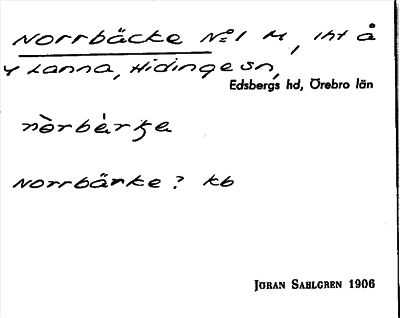 Norrbäcke No1 M, iht å
Y Lanna, Hidinge sn,
Edsbergs hd, Örebro län
nòrbàrʒa
Norrbärke ? kb
JÖRAN SAHLGREN 1906